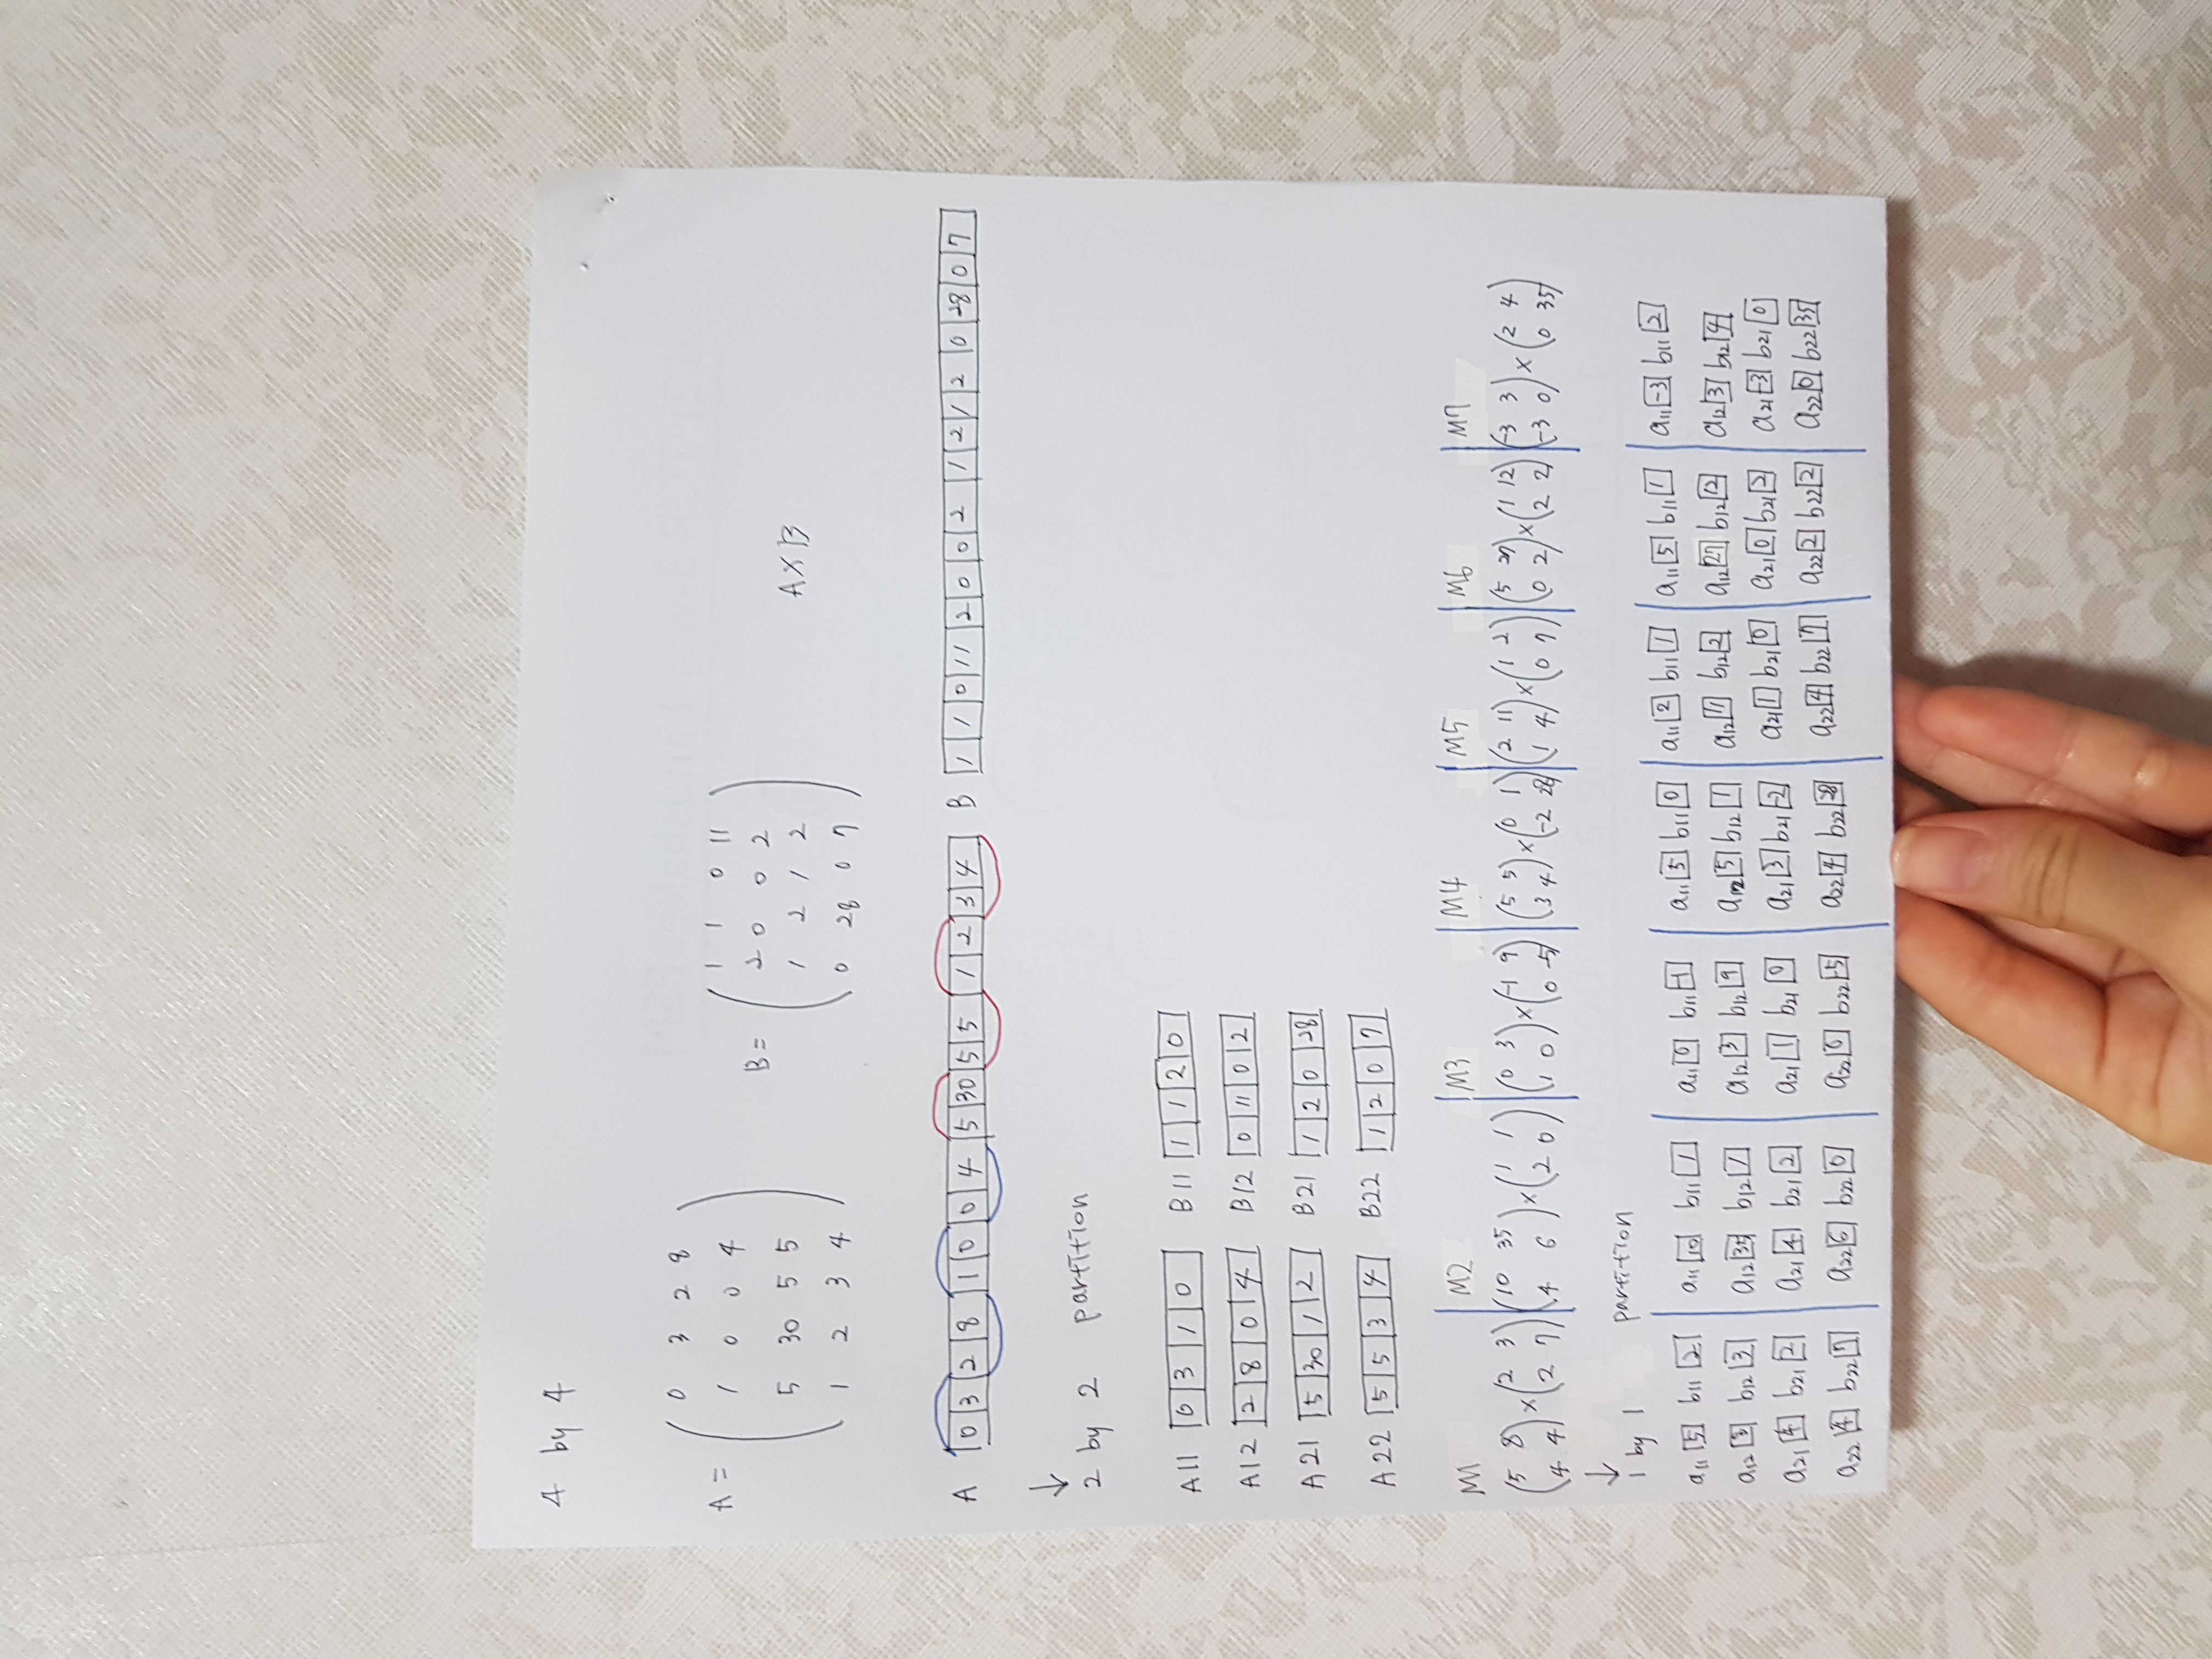 4 by 4
A = ( 0 3 2 8
1 0 0 4
5 30 5 5
1 2 3 4 )
B = ( 1 1 0 11
2 0 0 2
1 2 1 2
0 28 0 7 )
A X B
A 0 3 2 8 1 0 0 4 5 30 5 5 1 2 3 4 B 1 1 0 11 2 0 0 2 1 2 1 2 0 28 0 7
↓
2 by 2 partition
A11 0 3 1 0 B11 1 1 2 0
A12 2 8 0 4 B12 0 11 0 2
A21 5 30 1 2 B21 1 2 0 28
A22 5 5 3 4 B22 1 2 0 7
M1 M2 M3 M4 M5 M6 M7
(5 8 × (2 3 (10 35 × (1 1 (0 3 × (-1 9 (5 5 × (0 1 (2 11 × (1 2 (5 27 × (1 12 (-3 3 × (2 4
4 4) 2 7) 4 6) 2 0) 1 0) 0 -5) 3 4) -2 28) 1 4) 0 7) 0 2) 2 2) -3 0) 0 35)
↓
1 by 1 partition
a11 5 b11 2 a11 10 b11 1 a11 0 b11 -1 a11 5 b11 0 a11 2 b11 1 a11 5 b11 1 a11 -3 b11 2
a12 b12 3 a12 35 b12 1 a12 3 b12 9 a12 5 b12 1 a12 11 b12 2 a12 27 b12 12 a12 3 b12 4
a21 4 b21 2 a21 4 b21 2 a21 1 b21 0 a21 3 b21 -2 a21 1 b21 0 a21 0 b21 2 a21 -3 b21 0
a22 4 b22 7 a22 6 b22 0 a22 0 b22 -5 a22 4 b22 28 a22 4 b22 7 a22 2 b22 2 a22 0 b22 35